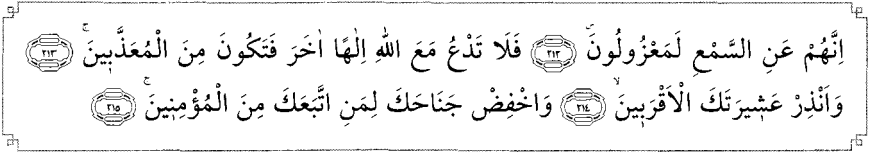 اِنَّهُمْ عَنِ السَّمْعِ لَمَعْزُولُونَۜ ﴿٢١٢﴾ فَلَا تَدْعُ مَعَ اللّٰهِ اِلٰهًا اٰخَرَ فَتَكُونَ مِنَ الْمُعَذَّب۪ينَۚ ﴿٢١٣﴾
وَاَنْذِرْ عَش۪يرَتَكَ الْاَقْرَب۪ينَۙ ﴿٢١٤﴾ وَاخْفِضْ جَنَاحَكَ لِمَنِ اتَّبَعَكَ مِنَ الْمُؤْمِن۪ينَۚ ﴿٢١٥﴾